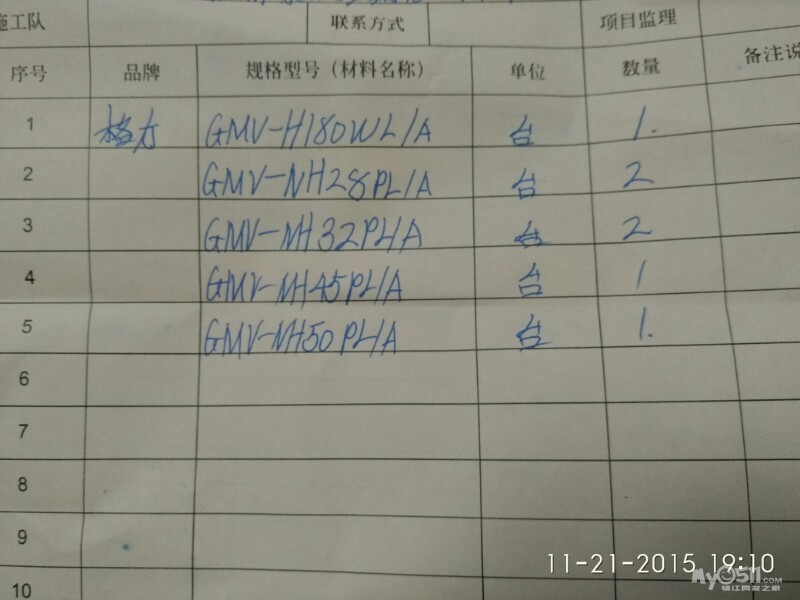 施工队 联系方式 项目监理
序号 品牌 规格型号（材料名称） 单位 数量 备注说
1 格力 GMV-H180WL/A 台 1.
2 GMV-NH28PL/A 台 2
3 GMV-NH32PL/A 台 2
4 GMV-NH45PL/A 台 1
5 GMV-NH50PL/A 台 1.
6
7
8
9
10
11-21-2015 19:10
My0511.COM
镇江网友之家